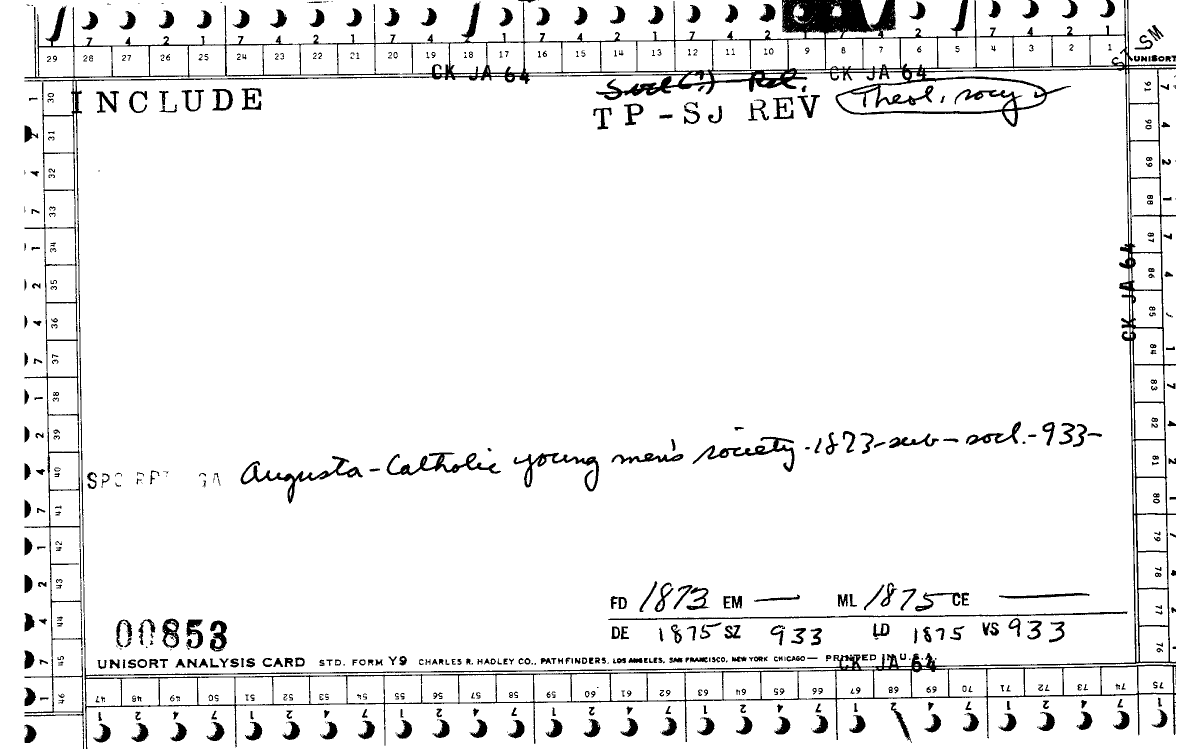 7 4 2 1 7 4 2 1 7 4 2 1 7 4 2 1 7 4 2 1
29 28 27 26 25 24 23 22 21 20 19 18 17 16 15 14 13 12 11 10 9 8 7 6 5 4 3 2 1
SM
UNISORT
CK JA 64 CK JA 64
INCLUDE
Socl(?) Rel.
TP-SJ REV Theol. socy
30 31 32 33 34 35 36 37 38 39 40 41 42 43 44 45 46
91 90 89 88 87 86 85 84 83 82 81 80 79 78 77 76 75
CK JA 64
SPC RPT GA Augusta-Catholic young men's society-1873-sub-socl.-933-
FD 1873 EM — ML 1875 CE —
DE 1875 SZ 933 LD 1875 VS 933
00853
UNISORT ANALYSIS CARD STD. FORM Y9 CHARLES R. HADLEY CO., PATHFINDERS, LOS ANGELES, SAN FRANCISCO, NEW YORK CHICAGO — PRINTED IN U.S.A.
CK JA 64
47 48 49 50 51 52 53 54 55 56 57 58 59 60 61 62 63 64 65 66 67 68 69 70 71 72 73 74